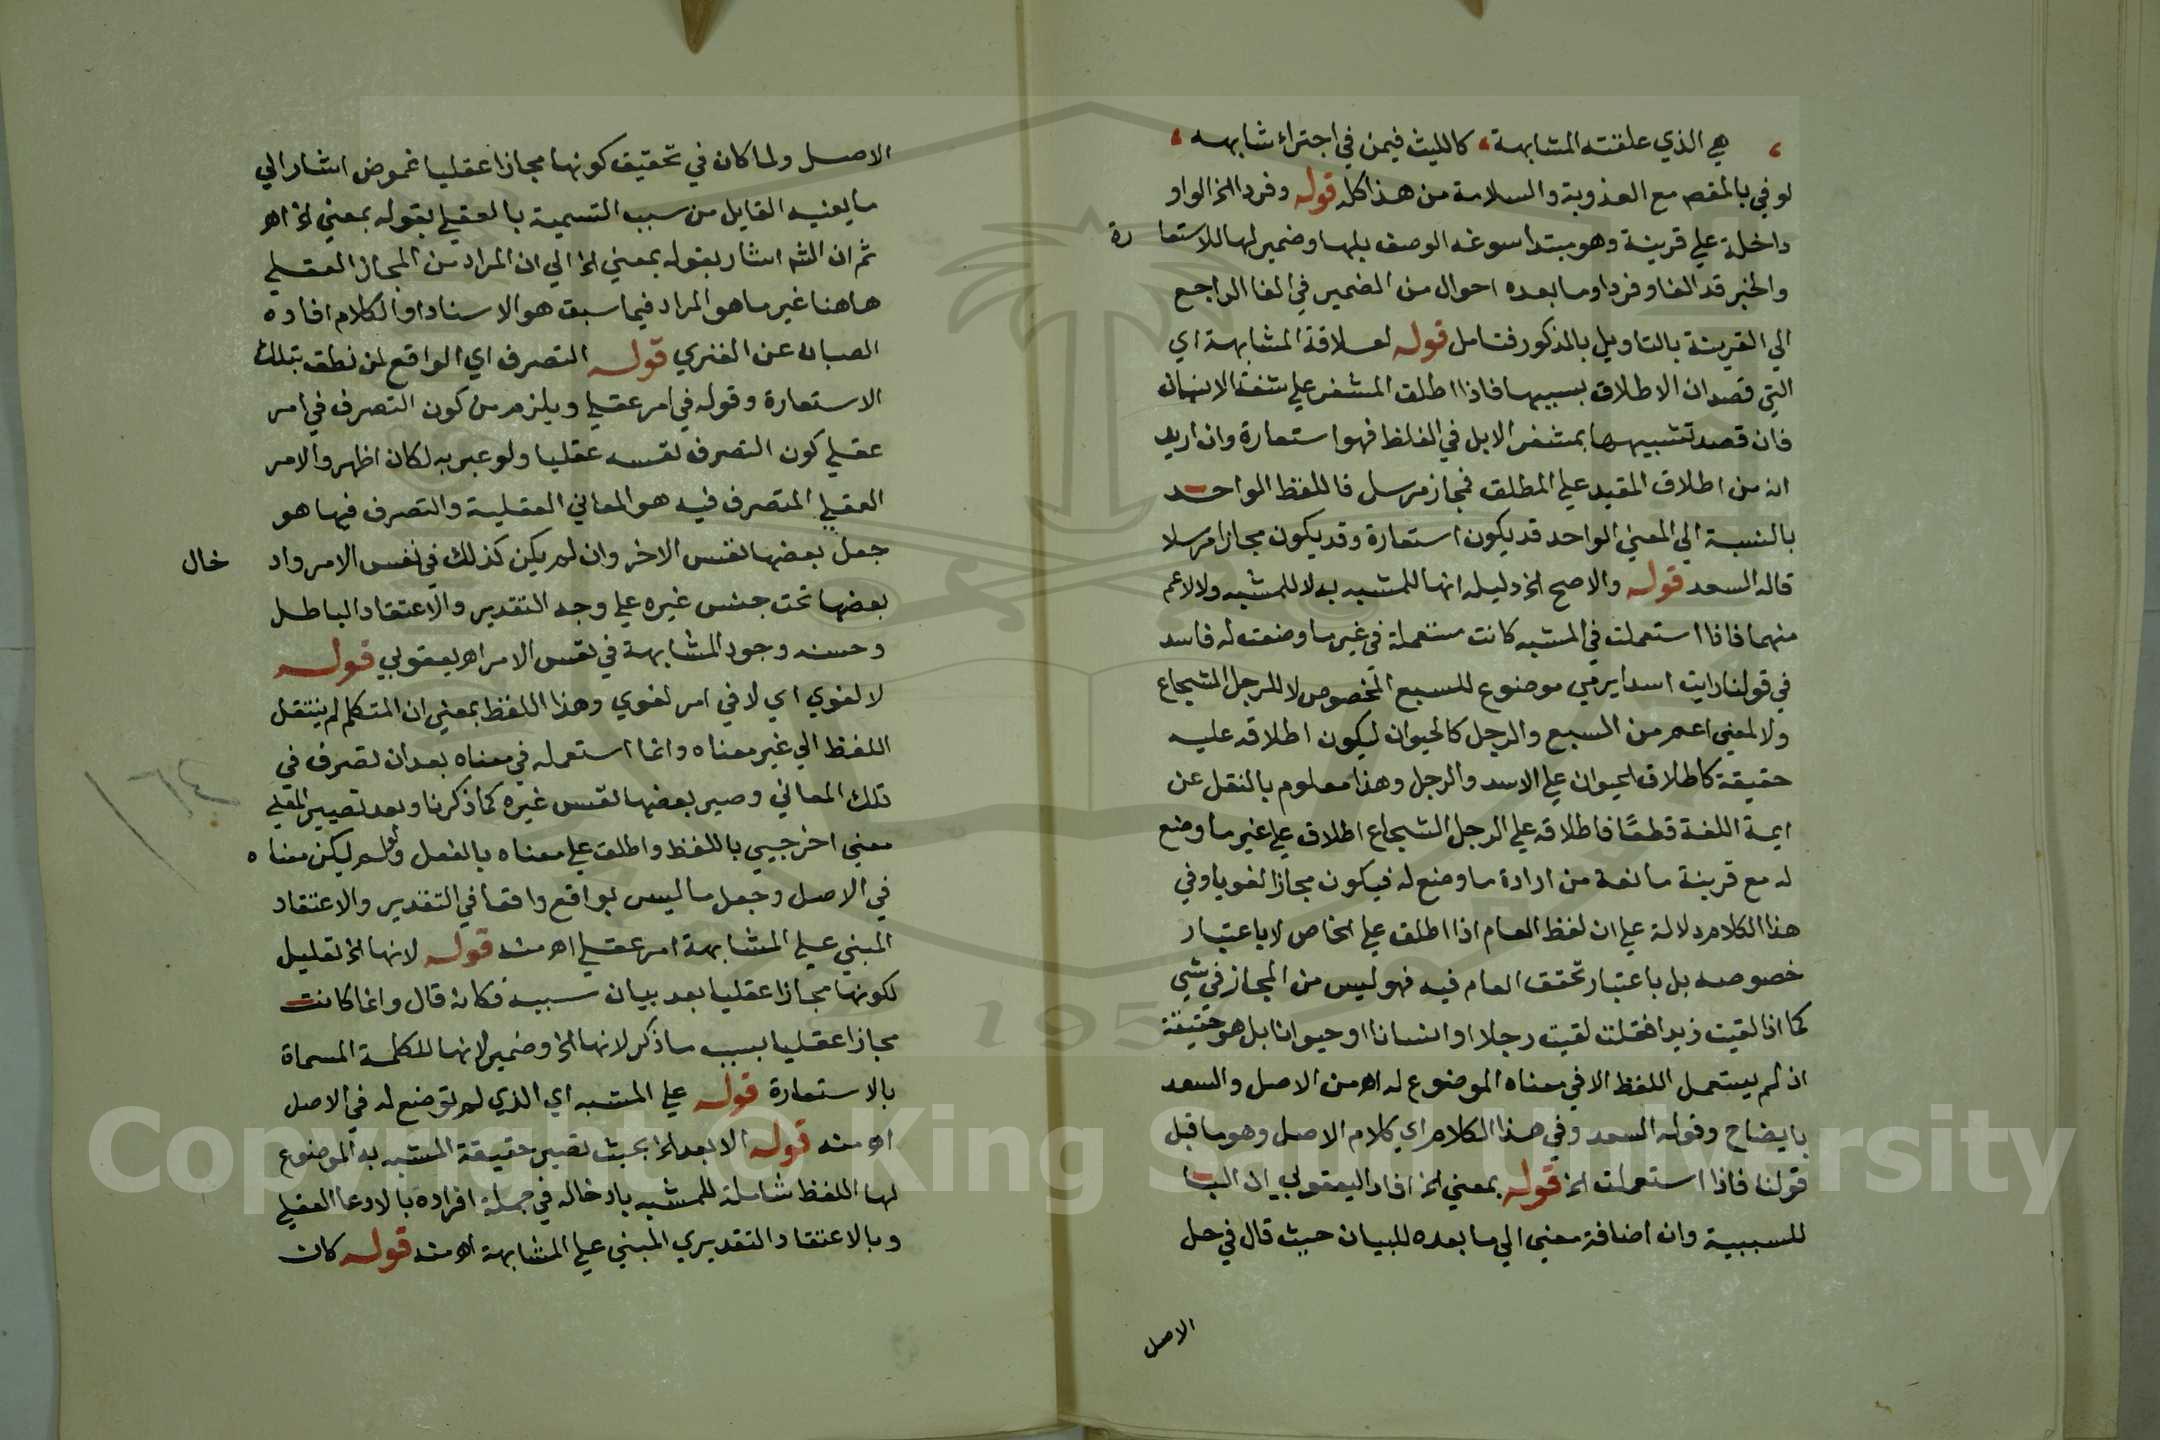 هي الذي علقته المشابهة، كالليث فيمن في اجتراء شابهه،
لوفي بالمقص مع العذوبة والسلامة من هذا كله قوله وفردا الخ الواو
داخلة علي قرينة وهو مبتدا سوغه الوصف بلها وضمير لها للاستعارة
والخبر قد الفا وفردا وما بعده احوال من الضمير في الفا الراجع
الي القرينة بالتاويل بالمذكور فتامل قوله لعلاقة المشابهة اي
التي قصد ان الاطلاق بسببها فاذا اطلق المشفر علي شفة الانسان
فان قصد تشبيهها بمشفر الابل في الغلظ فهو استعارة وان اريد
انه من اطلاق المقيد علي المطلق فمجاز مرسل فاللفظ الواحد
بالنسبة الي المعني الواحد قد يكون استعارة وقد يكون مجازا مرسلا
قاله السعد قوله والاصح الخ دليله انها للمشبه به لا للمشبه ولا لاعم
منهما فاذا استعملت في المشبه كانت مستعملة في غير ما وضعت له فاسد
في قولنا رايت اسدا يرمي موضوع للسبع المخصوص لا للرجل الشجاع
ولا لمعني اعم من السبع والرجل كالحيوان ليكون اطلاقه عليه
حقيقة كاطلاق الحيوان علي الاسد والرجل وهذا معلوم بالنقل عن
ايمة اللغة قطعًا فاطلاقه علي الرجل الشجاع اطلاق علي غير ما وضع
له مع قرينة مانعة من ارادة ما وضع له فيكون مجازا لغويا وفي
هذا الكلام دلالة علي ان لفظ العام اذا اطلق علي الخاص لا باعتبار
خصوصه بل باعتبار تحقق العام فيه فهو ليس من المجاز في شي
كما اذا لقيت زيدا فقلت لقيت رجلا او انسانا او حيوانا بل هو حقيقة
اذ لم يستعمل اللفظ الا في معناه الموضوع له اه من الاصل والسعد
بايضاح وقوله السعد وفي هذا الكلام اي كلام الاصل وهو ما قبل
قولنا فاذا استعملت الخ قوله بمعني الخ افاد اليعقوبي ان البا
للسببية وان اضافة معني الي ما بعده للبيان حيث قال في حل
الاصل
الاصل ولما كان في تحقيق كونها مجازا عقليا غموض اشار الي
ما يعنيه القايل من سبب التسمية بالعقلي بقوله بمعني الخ اه
ثم ان الش اشار بقوله بمعني الخ الي ان المراد من المجاز العقلي
هاهنا غير ما هو المراد فيما سبق هو الاسناد او الكلام افاده
الصبان عن الفنري قوله التصرف اي الواقع لمن نطق بتلك
الاستعارة وقوله في امر عقلي ويلزم من كون التصرف في امر
عقلي كون التصرف نفسه عقليا ولو عبر به لكان اظهر والامر
العقلي المتصرف فيه هو المعاني العقلية والتصرف فيها هو
جعل بعضها نفس الاخر وان لم يكن كذلك في نفس الامر واد خال
بعضها تحت جنس غيره علي وجه التقدير والاعتقاد الباطل
وحسنه وجود المشابهة في نفس الامر اه يعقوبي قوله
لا لغوي اي لا في امر لغوي وهذا اللفظ بمعني ان المتكلم لم ينتقل
اللفظ الي غير معناه وانما استعمله في معناه بعد ان تصرف في
تلك المعاني وصير بعضها نفس غيره كما ذكرنا وبعد تصيير المعني
معني اخر جيي باللفظ واطلق علي معناه بالفعل ولو لم يكن معناه
في الاصل وجعل ما ليس بواقع واقعا في التقدير والاعتقاد
المبني علي المشابهة امر عقلي اه منه قوله لانها الخ تعليل
لكونها مجازا عقليا بعد بيان سببه فكانه قال وانما كانت
مجازا عقليا بسبب ما ذكر لانها الخ وضمير لانها للكلمة المسماة
بالاستعارة قوله علي المشبه اي الذي لم توضع له في الاصل
اه منه قوله الا بعد الخ بحيث تصير حقيقة المشبه به الموضوع
لها اللفظ شاملة للمشبه بادخاله في جملة افراده بالادعا العقلي
وبالاعتقاد التقديري المبني علي المشابهة اه منه قوله كان
٦٤
Copyright © King Saud University
195